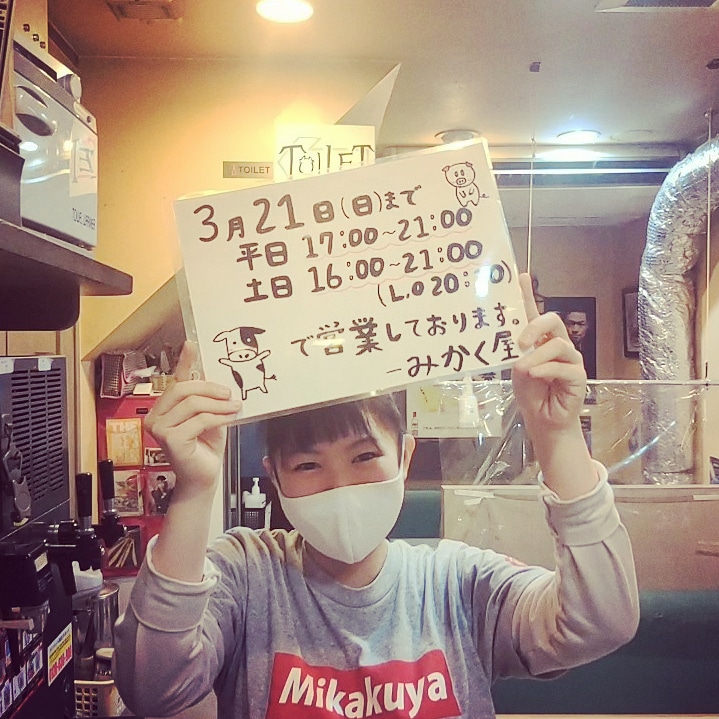 TOILET
TOILET
3月21日(日)まで
平日 17:00~21:00
土日 16:00~21:00
(L.O 20:00)
で営業しております。
-みかく屋
Mikakuya